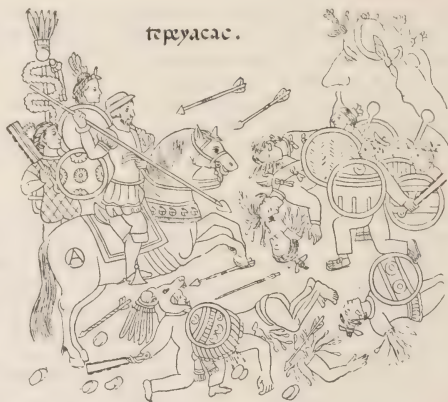 tepeyacac.
A